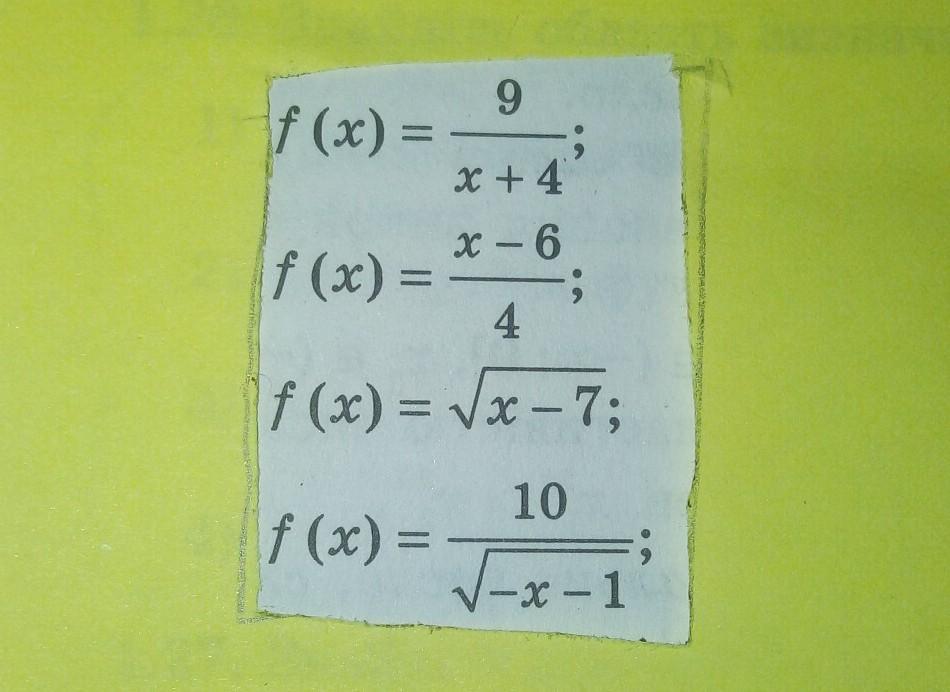 f (x) = 9/(x + 4);
f (x) = (x − 6)/4;
f (x) = √(x − 7);
f (x) = 10/√(−x − 1);